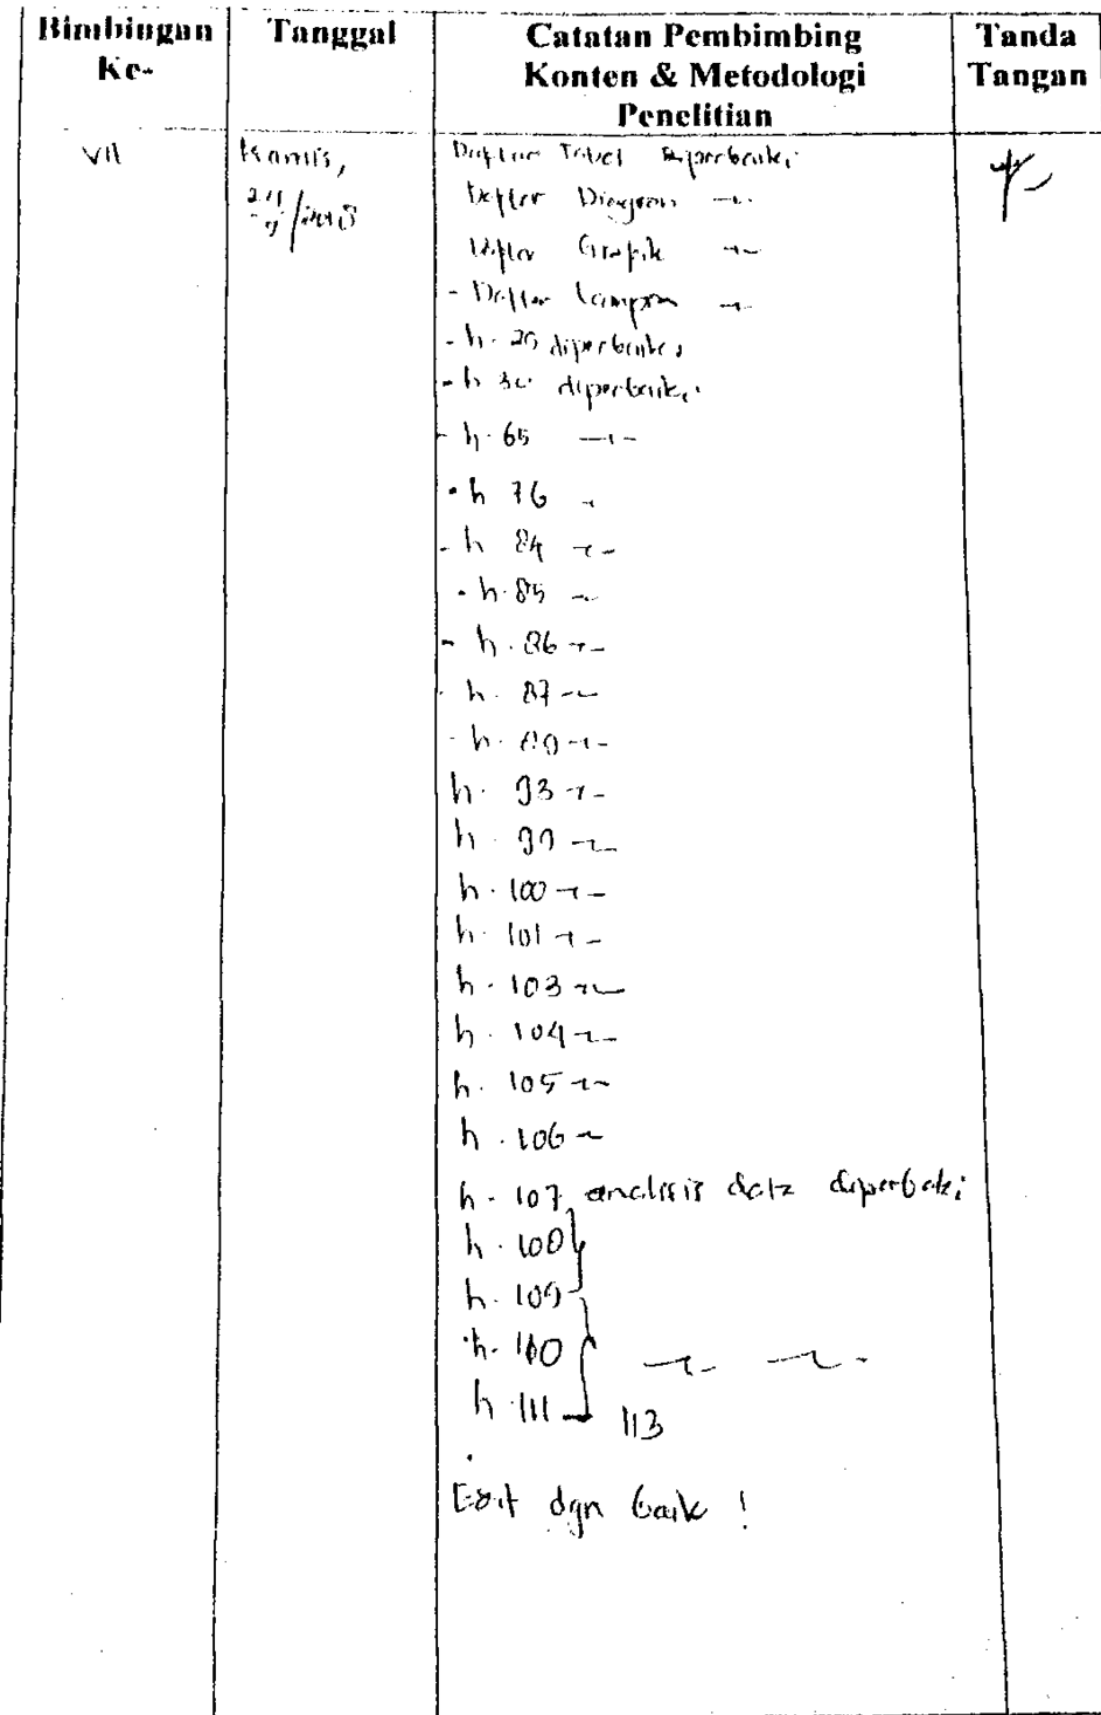 Bimbingan Ke-
Tanggal
Catatan Pembimbing
Konten & Metodologi
Penelitian
Tanda
Tangan
VII
Kamis,
Daftar Tabel diperbaiki
Daftar Diagram -"-
Daftar Grafik -"-
- Daftar Lampiran -"-
- h. diperbaiki
- h 30 diperbaiki
- h. 65 -"-
- h 76 "
- h 84 -"-
- h. 85 -"-
- h. 86 -"-
- h. 87 -"-
- h. -"-
h. 93 -"-
h. 99 -"-
h. 100 -"-
h. 101 -"-
h. 103 -"-
h. 104 -"-
h. 105 -"-
h. 106 -"-
h. 107, analisis data diperbaiki
h. 108
h. 109
h. 110 -"- -"-
h. 111 - 113
Edit dgn baik !